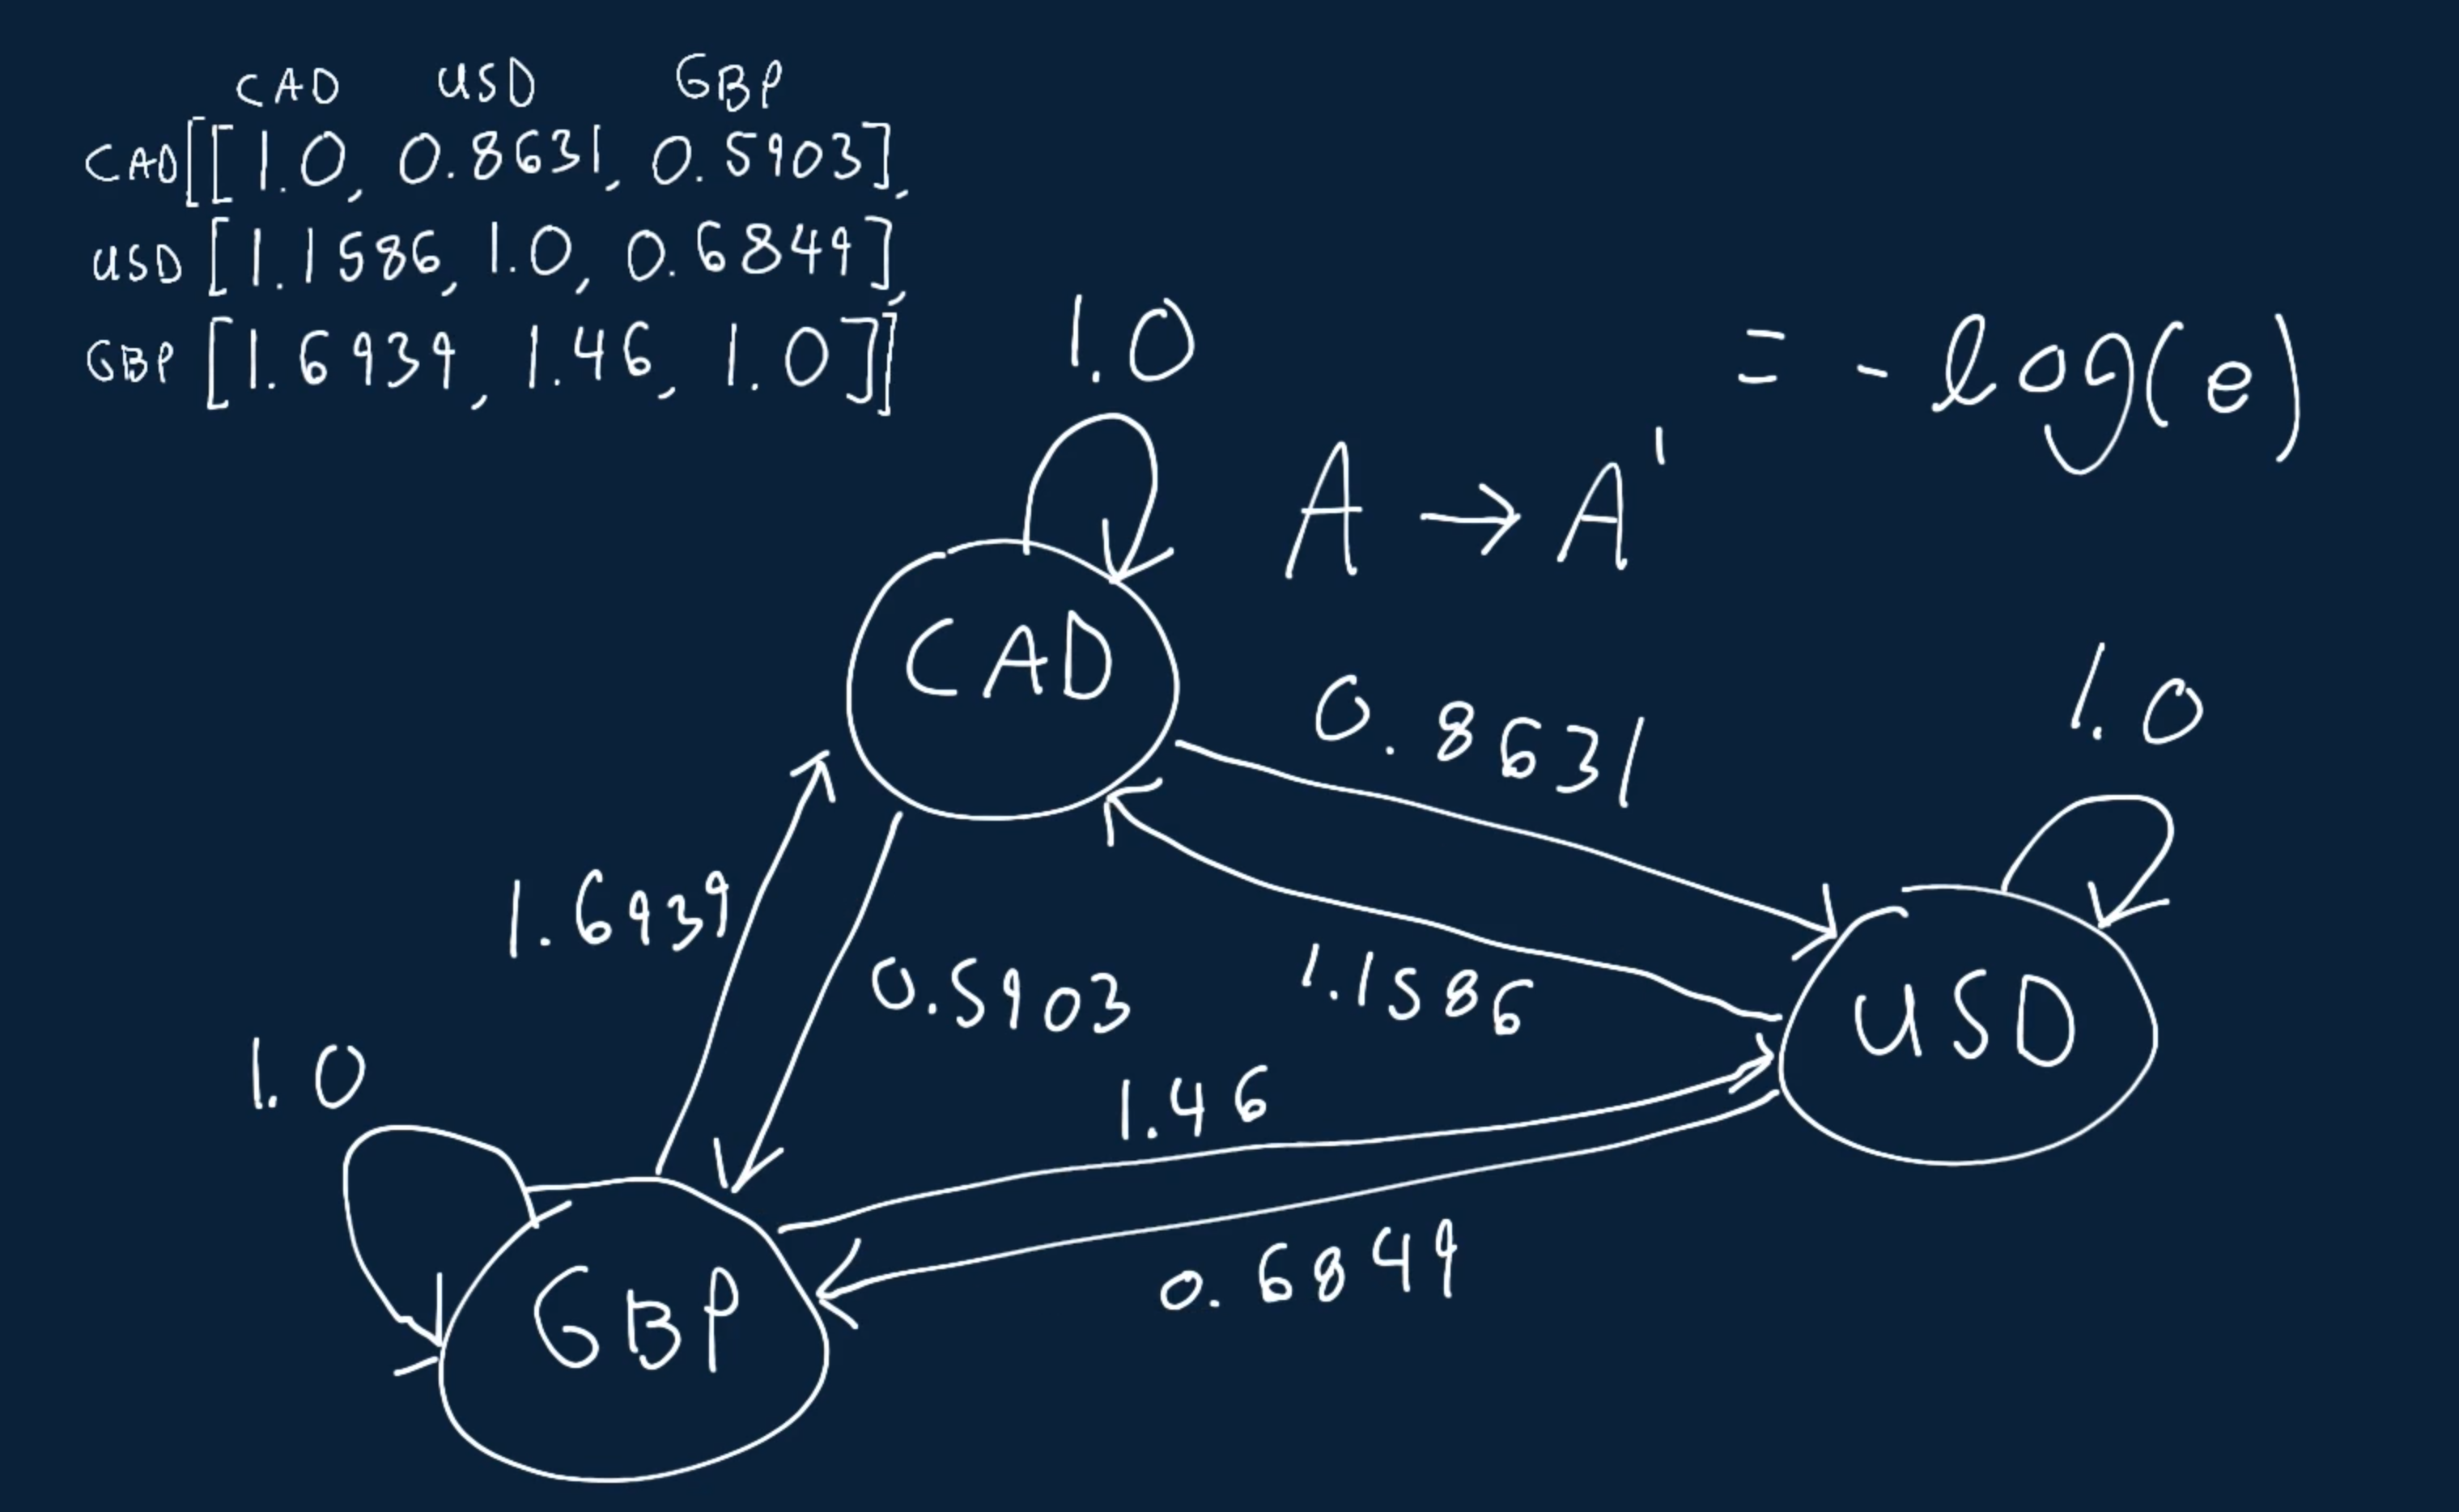 CAD USD GBP
CAD[[1.0, 0.8631, 0.5903],
USD [1.1586, 1.0, 0.6849],
GBP [1.6939, 1.46, 1.0]]
1.0
= - log(e)
A → A'
CAD
0.8631
1.0
1.6939
0.5903
1.1586
USD
1.0
1.46
0.6849
GBP